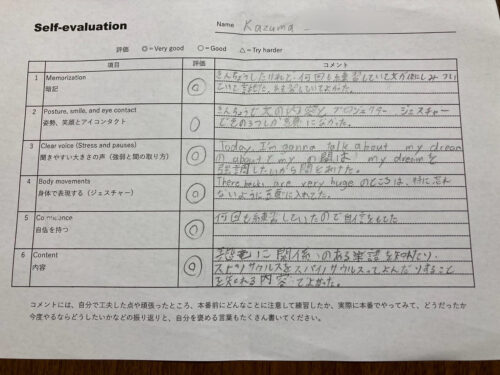 Self-evaluation
Name Kazuma
評価 ◎=Very good ○=Good △=Try harder
項目 評価 コメント
1 Memorization
暗記
◎
きんちょうしたけれど、何回も練習していて
いて
練習していてよかった。
2 Posture, smile, and eye contact
姿勢、笑顔とアイコンタクト
○
きんちょうで文の内容とプロジェクター、ジェスチャー
3 Clear voice (Stress and pauses)
聞きやすい大きさの声（強弱と間の取り方）
◎
Today, I'm gonna talk about my dream
の about と my の間は my dream を
強調したいから間をあけた。
4 Body movements
身体で表現する（ジェスチャー）
◎
are very huge のところは、特に忘れ
ないように に入れてた。
5
自信を持つ
◎
何回も練習していたので自信をもてた
6 Content
内容
◎
恐竜に関係のある単語を知れたり、
スピノサウルスをスパイノサウルスってよんだりすること
を知れる内容でよかった。
コメントには、自分で工夫した点や頑張ったところ、本番前にどんなことに注意して練習したか、実際に本番でやってみて、どうだったか
今度やるならどうしたいかなどの振り返りと、自分を褒める言葉もたくさん書いてください。